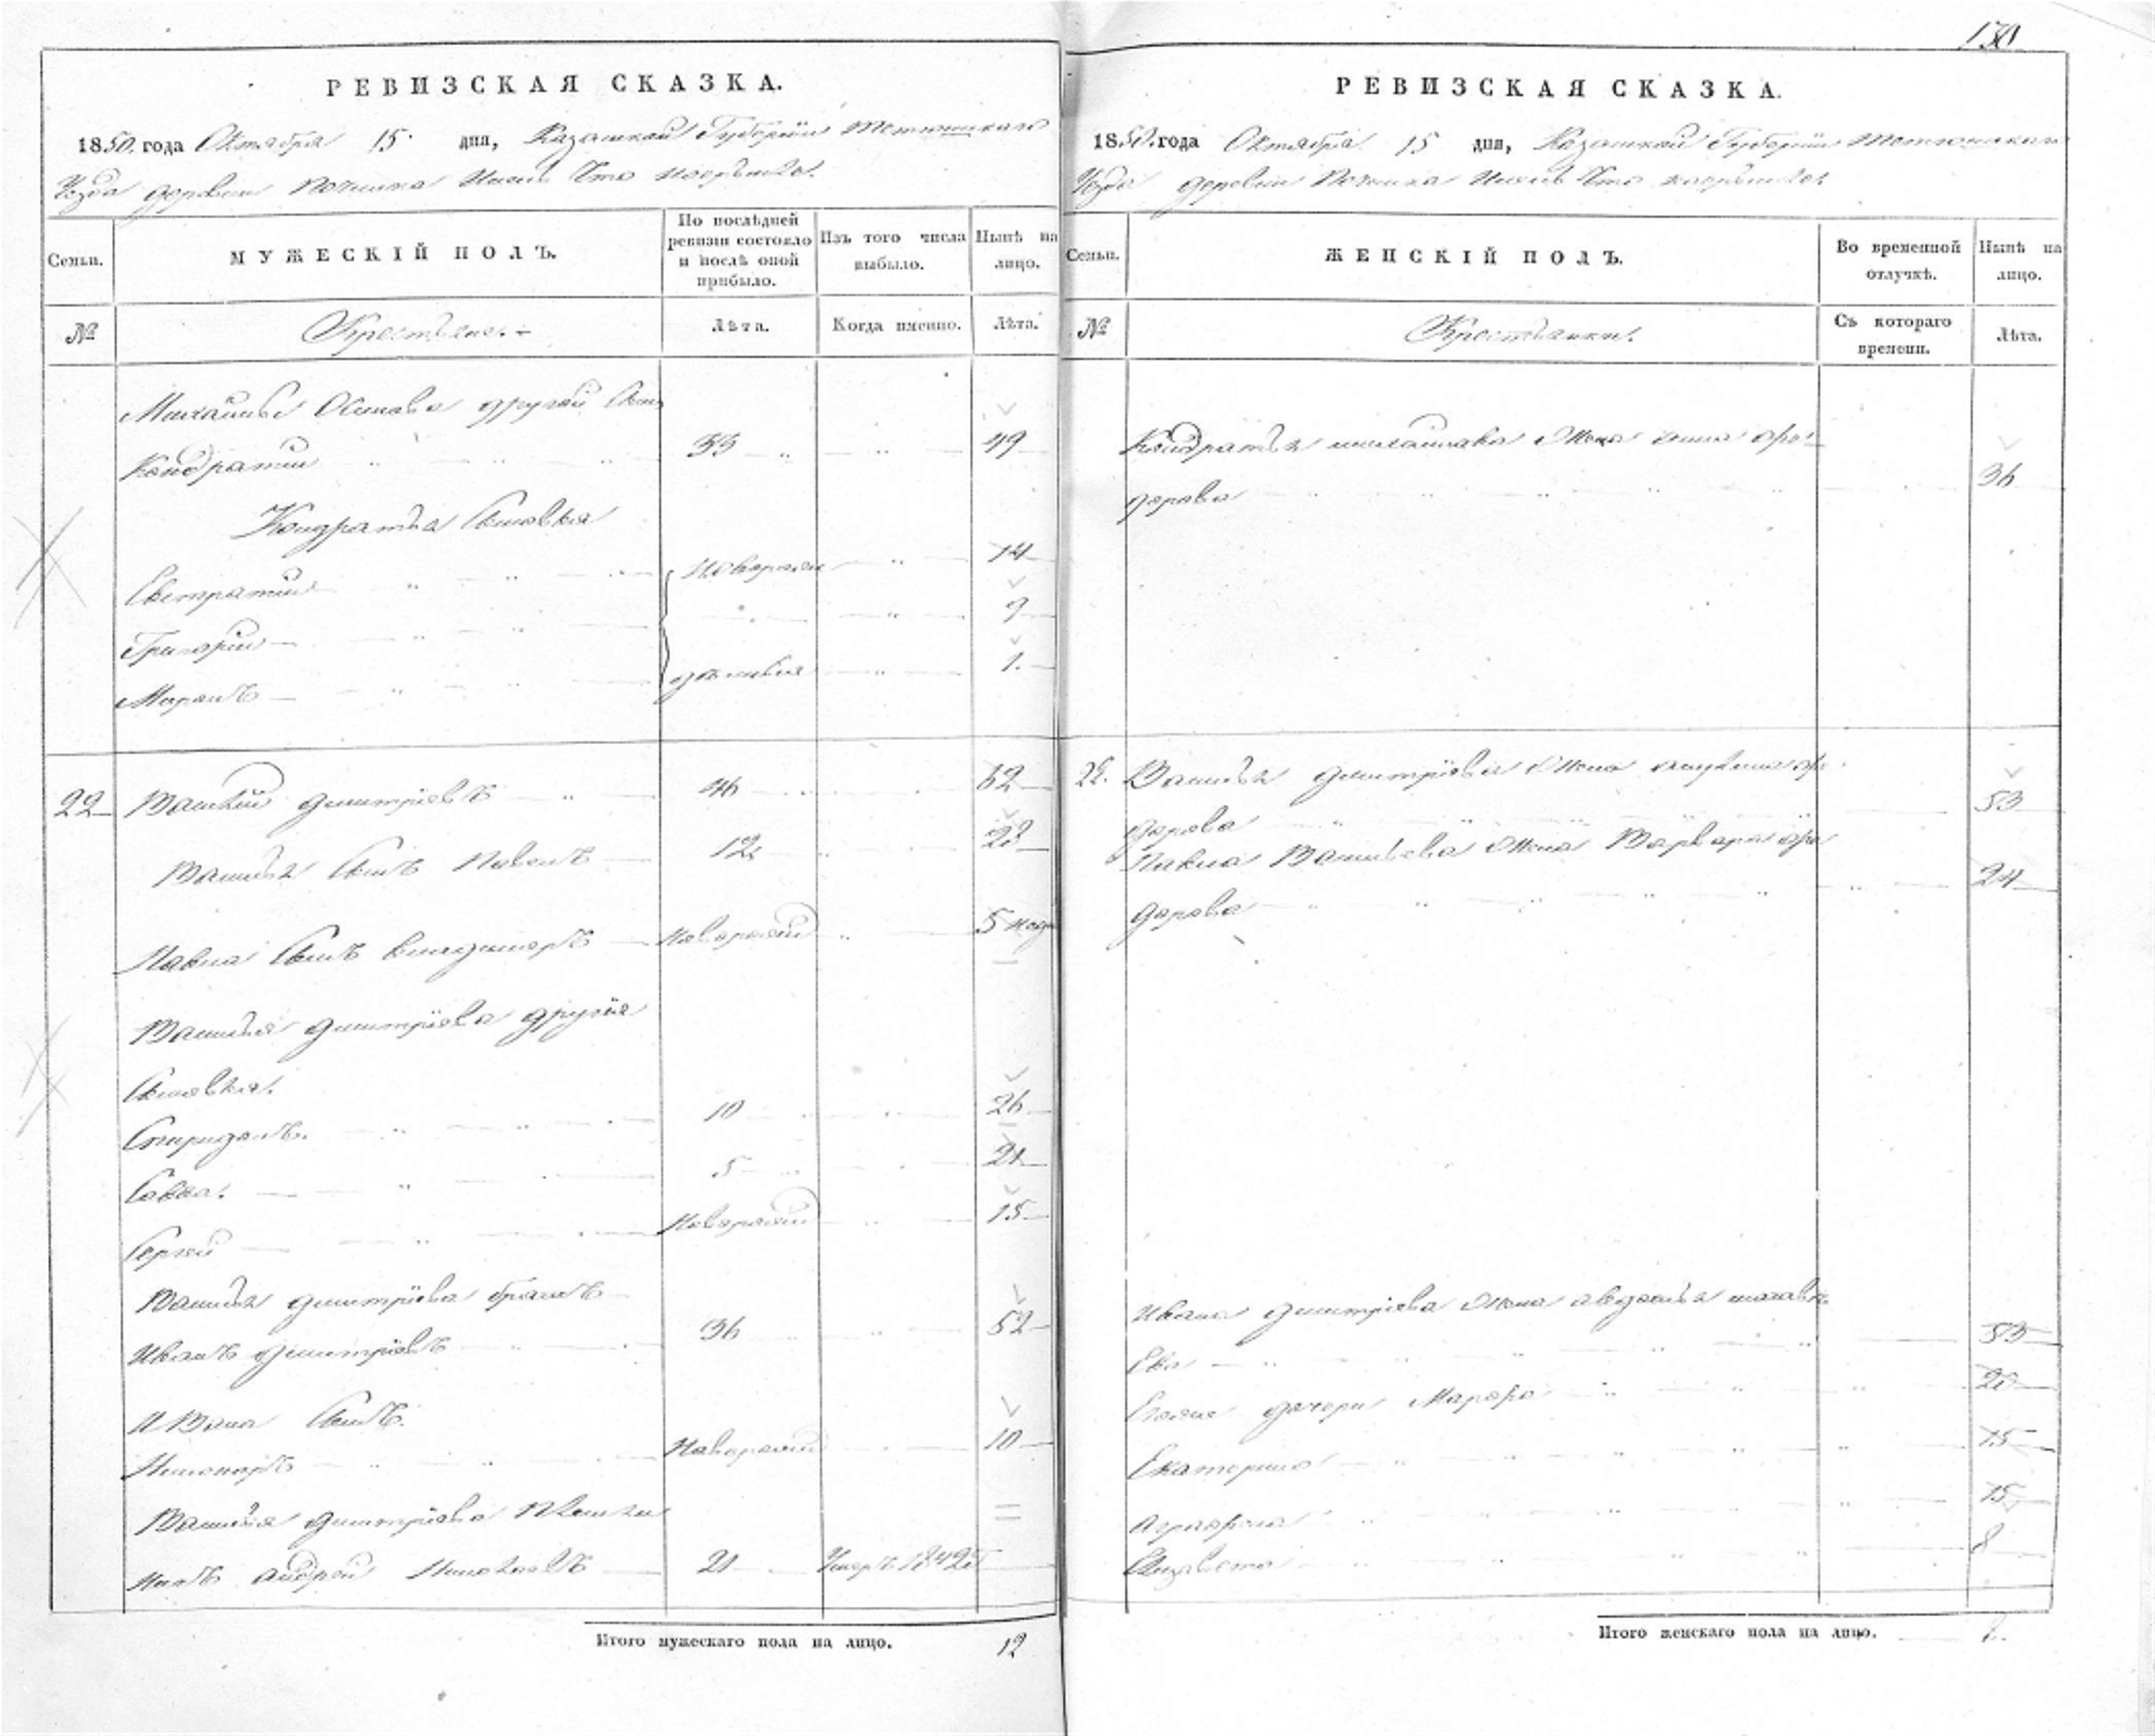 130
РЕВИЗСКАЯ СКАЗКА.
1850. года Октября 15 дня, Казанской Губернии Тетюшскаго
Уезда деревни Починка
Семьи.
МУЖЕСКІЙ ПОЛЪ.
По послѣдней ревизіи состояло и послѣ оной прибыло.
Изъ того числа выбыло.
Нынѣ на лицо.
№
Крестьяне.
Лѣта.
Когда именно.
Лѣта.
Михайлы Осипова другой сынъ
Кондратий 33 49
Кондратья сыновья
Евстратий 14
Григорий 9
1.
22 Василий Дмитріевъ 46 62
Василья сынъ Павелъ 12 28
Павла сынъ Владимеръ 5
Василья Дмитріева другія
сыновья.
Спиридонъ. 10 26
Савва. 5 21
Сергей 15
Василья Дмитріева братъ
Иванъ Дмитріевъ 36 52
Ивана сынъ.
Никаноръ 10
Василья Дмитріева племян
никъ Андрей Николаевъ 21 1842
Итого мужескаго пола на лицо. 12
РЕВИЗСКАЯ СКАЗКА.
1850. года Октября 15 дня, Казанской Губернии Тетюшскаго
Уезда деревни Починка
Семьи.
ЖЕНСКІЙ ПОЛЪ.
Во временной отлучкѣ.
Нынѣ на лицо.
№
Крестьянки.
Съ котораго времени.
Лѣта.
Кондратья Михайлова жена Анна Фе
дорова 36
22. Василья Дмитріева жена Фе
дорова 53
Павла Васильева жена Варвара Фе
дорова 24
Ивана Дмитріева жена Авдотья
53
дочери 20
Екатерина 15
Аграфена 15
Елизавета 8
Итого женскаго пола на лицо.